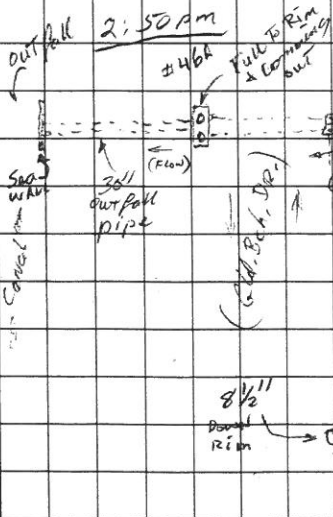 2:50 pm
outfall
#46A
Full To Rim
& Comming
out
(Flow)
Sea
wall
30"
outfall
pipe
Canal
(Gld. Bch. DR.)
8 1/2"
Down
Rim